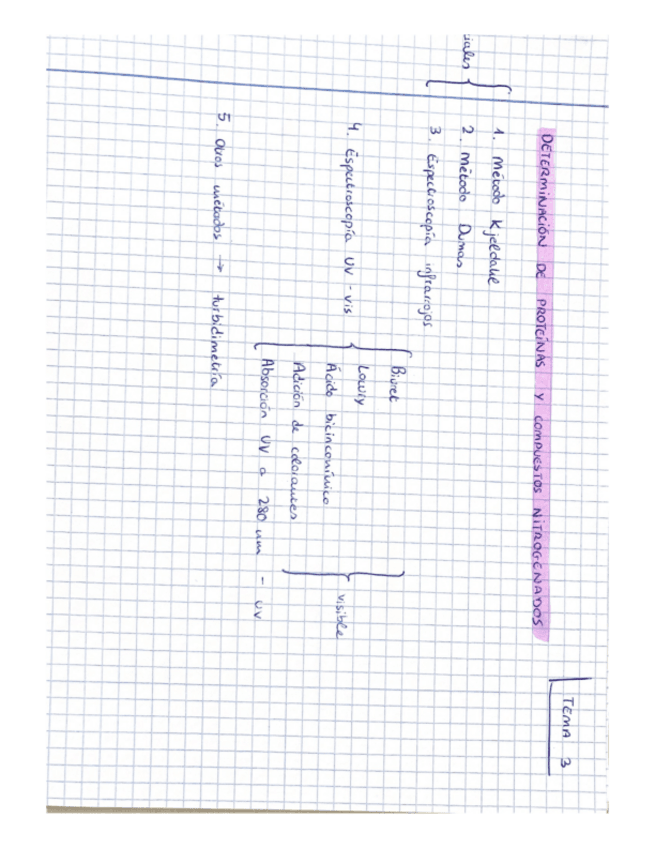 TEMA 3
DETERMINACIÓN DE PROTEÍNAS Y COMPUESTOS NITROGENADOS
1. Método Kjeldahl
2. Método Dumas
3. Espectroscopía infrarrojos
4. Espectroscopía UV - vis
Biuret
Lowry
Ácido bicinconínico
Adición de colorantes
visible
Absorción UV a 280 nm - UV
5. Otros métodos → turbidimetría